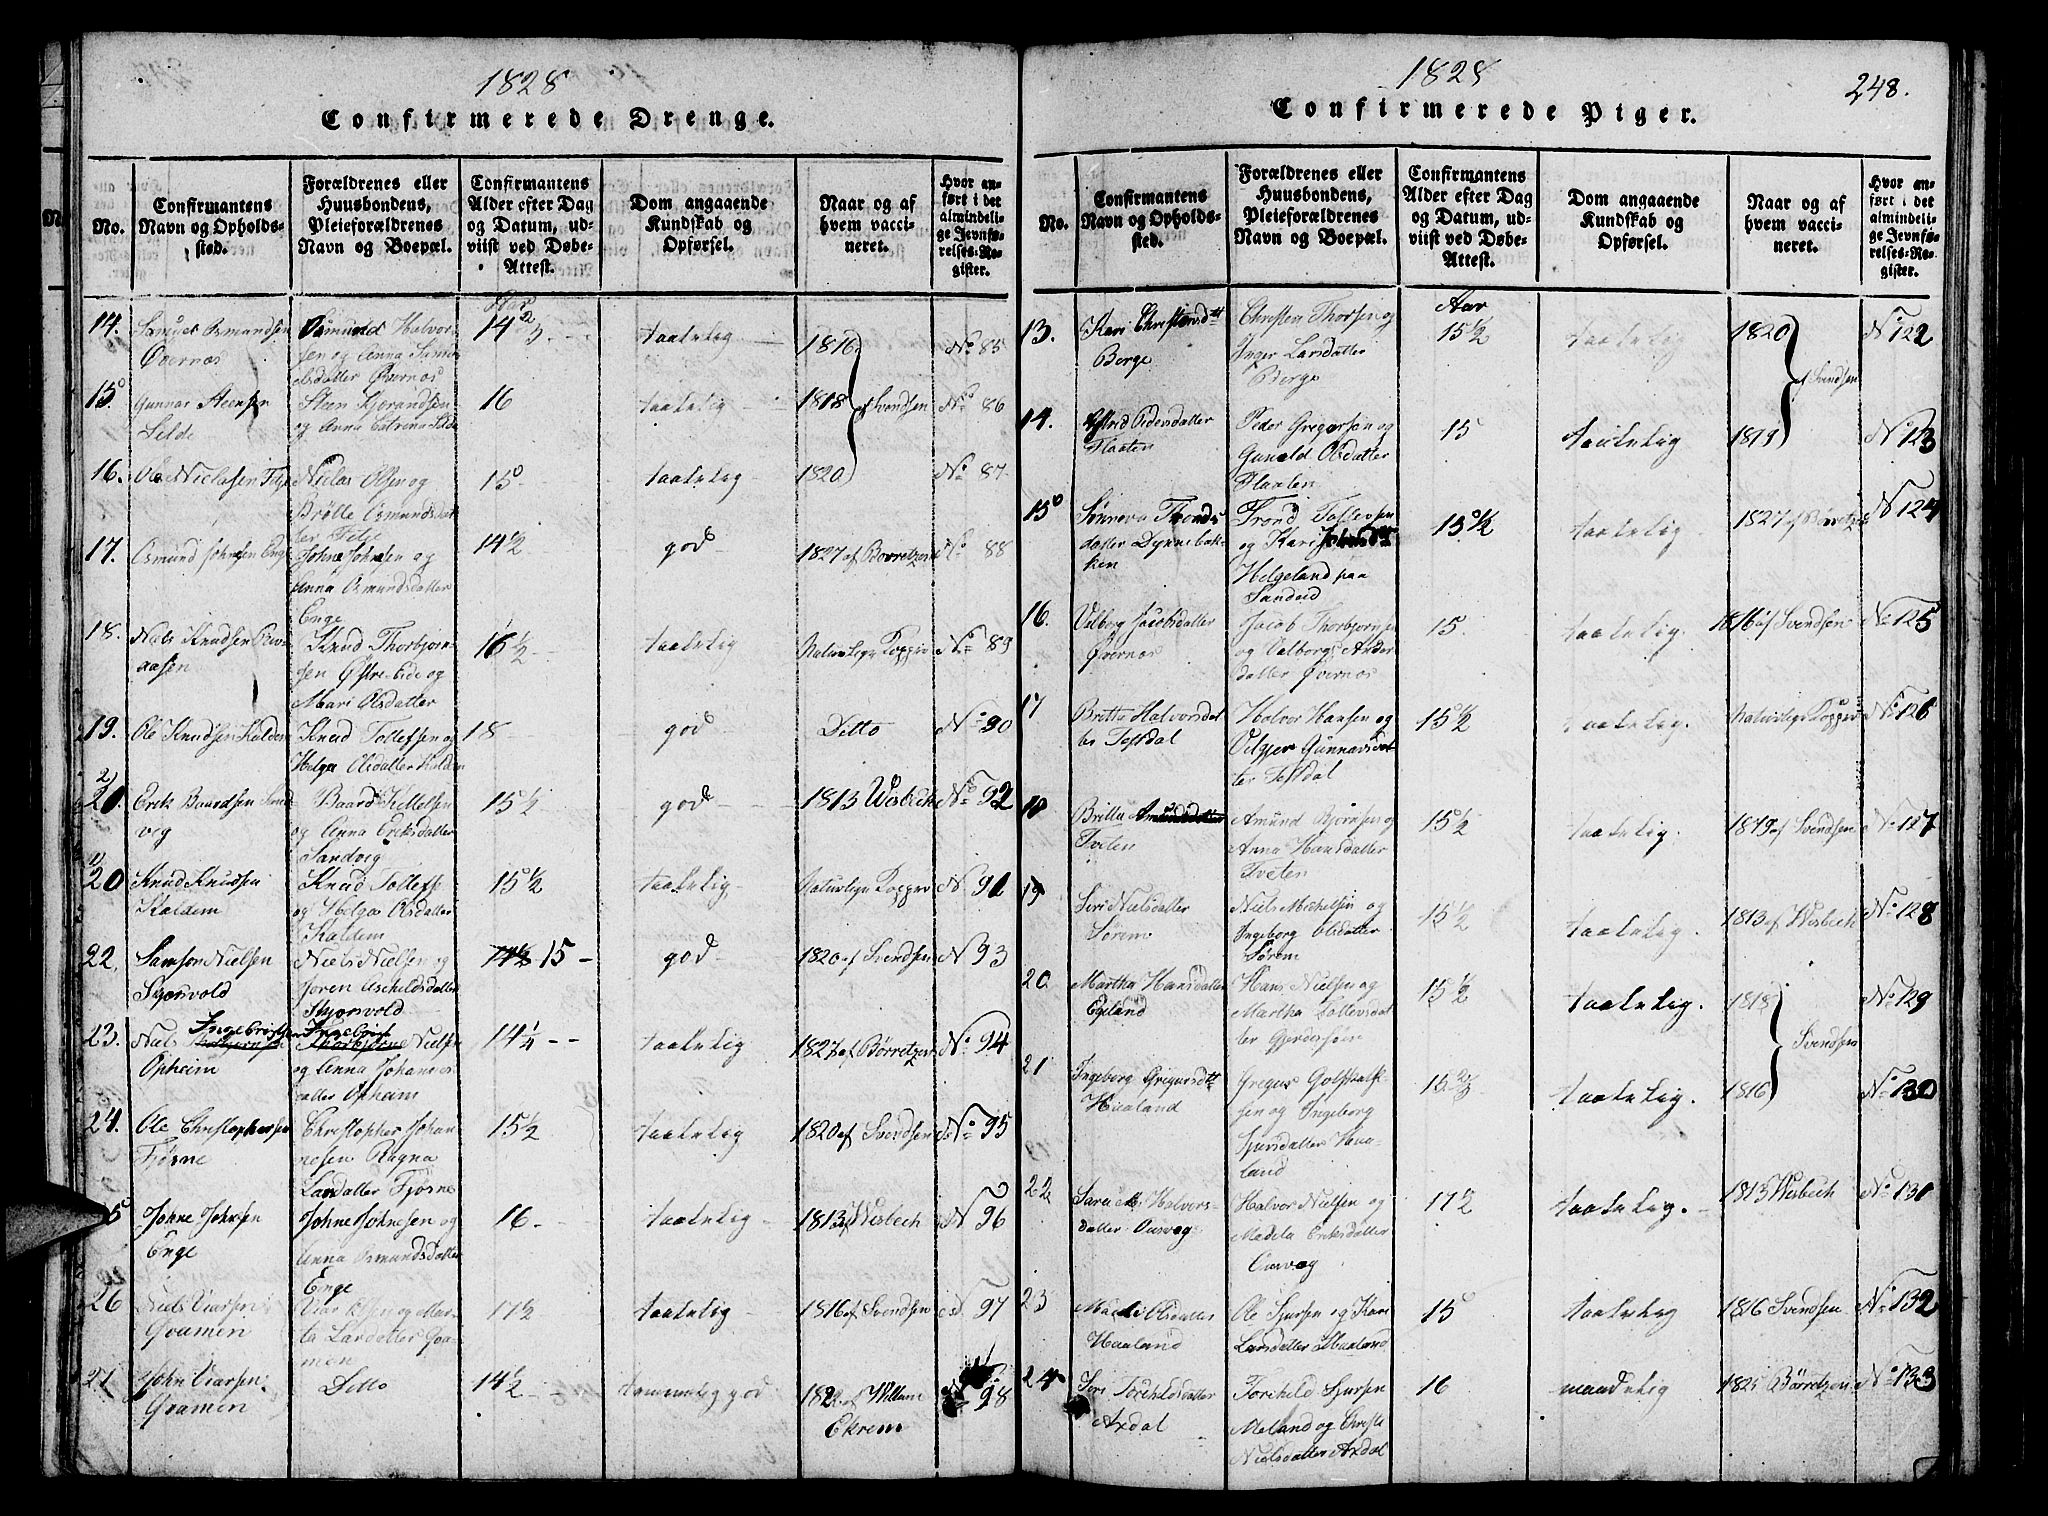 1828
Confirmerede Drenge.
No.
Confirmantens
Navn og Opholds-
sted.
Forældrenes eller
Huusbondens,
Pleieforældrenes
Navn og Boepæl.
Confirmantens
Alder efter Dag
og Datum, ud-
viist ved Døbe-
Attest.
Dom angaaende
Kundskab og
Opførsel.
Naar og af
hvem vacci-
neret.
Hvor an-
ført i det
almindeli-
ge Jevnfø-
relses-Re-
gister.
Aar
14.
Øvernos
Osmund Halvor-
sen og Anna
datter Øvernos
14 2/3
taalelig
1816
No 85
15
Gunnar Steensen
Silde
Steen Gjerandsen
og Anna Catrina Silde
16
taalelig
1818
af Svendsen
No 86
16.
Ole Niclasen
Niclas Olsen og
Brølle Osmundsdat-
ter
15
taalelig
1820
No 87
17.
Osmund Johnsen Enge
Johne Johnsen og
Anna Osmundsdatter
Enge
14 1/2
god
1827 af Børretzen
No 88
18.
Niels Knudsen
aasen
Knud Thorbjørn-
sen Østrebide og
Mari Olsdatter
16 1/2
taalelig
Naturlige Kopper
No 89
19.
Ole Knudsen Kaldem
Knud Tollefsen og
Helga Olsdatter Kaldem
18
god
Ditto
No 90
2)
20.
Erik Baardsen Sand-
vig
Baard Kittelsen
og Anna Eriksdatter
Sandvig
15 1/2
god
1813 Wisbech
No 92
1)
20
Knud Knudsen
Kaldem
Knud Tollefs
og Helga Olsdatter
Kaldem
15 1/2
taalelig
Naturlige Kopper
No 91
22.
Samson Nielsen
Skjorvold
Niels Nielsen og
Joren Aschildsdatter
Skjorvold
14 1/2 15
god
1820 af Svendsen
No 93
23.
Niels Ingebrigtsen
Opheim
Ingebrigt
Thorbjørn Nielsen
og Anna Johannes-
datter Opheim
14 1/4
taalelig
1827 af Børretzen
No 94
24.
Ole Christophersen
Fjøsne
Christopher Johan-
nesen Ragna
Larsdatter Fjøsne
15 1/2
taalelig
1820 af Svendsen
No 95
5
Johne Johnsen
Enge
Johne Johnesen og
Anna Osmundsdatter
Enge
16
taalelig
1813 af Wisbech
No 96
26
Niels Viarsen
Qvamen
Viar Olsen og Mar-
ta Larsdatter Qva-
men
17 1/2
taalelig
1816 af Svendsen
No 97
27
John Viarsen
Qvamen
Ditto
14 1/2
temmelig god
182 af Willem
Ekrem
98
1828
248.
Confirmerede Piger.
No.
Confirmantens
Navn og Opholds-
sted.
Forældrenes eller
Huusbondens,
Pleieforældrenes
Navn og Boepæl.
Confirmantens
Alder efter Dag
og Datum, ud-
viist ved Døbe-
Attest.
Dom angaaende
Kundskab og
Opførsel.
Naar og af
hvem vacci-
neret.
Hvor an-
ført i det
almindeli-
ge Jevnfø-
relses-Re-
gister.
Aar
13.
Kari Christensdtt
Berge
Christen Thorsen og
Inger Larsdatter
Berge
15 1/2
taalelig
1820
af Svendsen
No 122
14.
Astrid Pedersdatter
Flaaten
Peder Gregersen og
Gunild Olsdatter
Flaaten
15
taalelig
1819
No 123
15
Sønneva Tronds
datter Dynnebak-
ken
Trond Tollevsen
og Kari
Helgeland paa
Sandeid
15 1/2
taalelig
1827 af Børretzen
No 124
16.
Valborg Jacobsdatter
Øvernos
Jacob Thorbjørnsen
og Valborg Anders
datter Øvernos
15.
taalelig.
1816 af Svendsen
No 125
17
Britta Halvorsdat
ter Tostdal
Halvor Hansen og
Gunnarsdat
ter Tostdal
15 1/2
taalelig.
Naturlige Kopper
No 126
18
Britta Amundsdatter
Tveten
Amund Bjørnsen og
Anna Hansdatter
Tveten
15 1/2
taalelig.
1819 af Svendsen
No 127
19
Siri Nielsdatter
Sørem
Niels Michelsen og
Ingeborg Olsdatter
Sørem
15 1/2
taalelig.
1813 af Wisbech
No 128
20
Martha Hansdatter
Egeland
Hans Nielsen og
Martha Tollevsdat
ter Gjerdesheim
15 1/2
taalelig.
1818
Svendsen
No 129
21
Ingeborg Gregersdtt
Haaland
Gregus
sen og Ingeborg
Sjursdatter Haa-
land
15 2/3
taalelig.
1816
No 130
22
Sara M. Halvors-
datter Ousvog
Halvor Nielsen og
Madela Eriksdatter
Ousvog
17 1/2
taalelig.
1813 Wisbech
No 131
23
Olsdatter
Haaland
Ole Sjursen og Kari
Larsdatter Haaland
15
taalelig
1816 Svendsen
No 132
24
Siri Torchildsdatter
Axdal
Torchild Sjursen
Meland og Christi
Nielsdatter Axdal
16
maadelig
1825 Børretzen
No 133